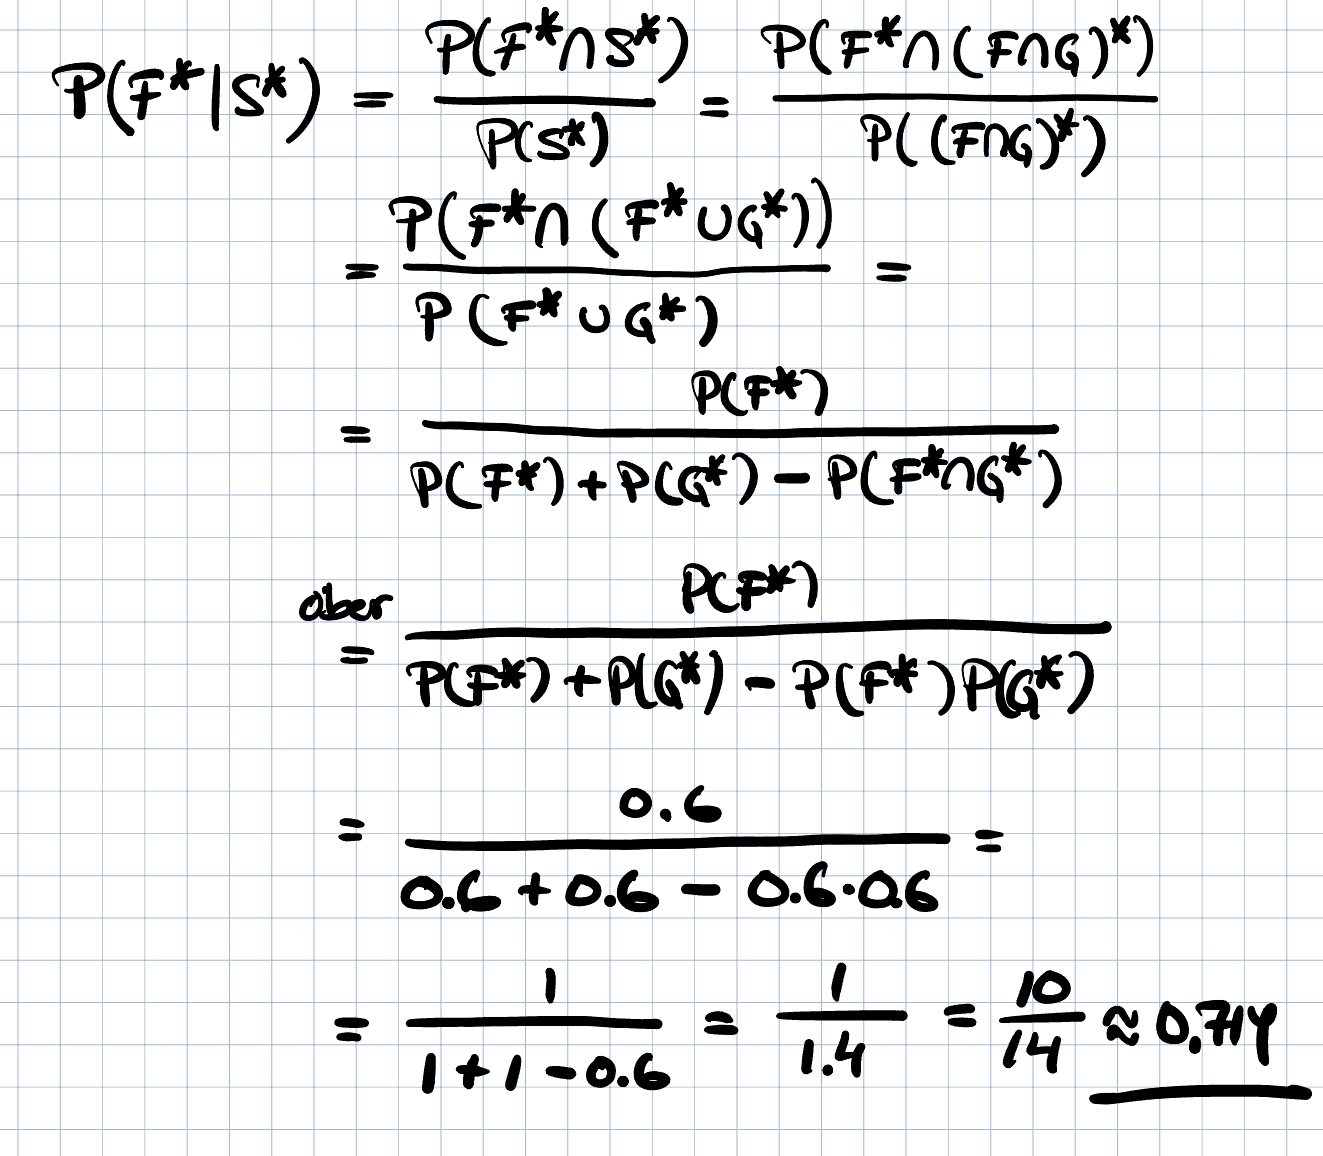 P(F*|S*) = P(F*∩S*) / P(S*) = P(F*∩(F∩G)*) / P((F∩G)*)
= P(F*∩(F*∪G*)) / P(F*∪G*) =
= P(F*) / P(F*)+P(G*)−P(F*∩G*)
aber
= P(F*) / P(F*)+P(G*)−P(F*)P(G*)
= 0.6 / 0.6+0.6−0.6·0.6 =
= 1 / 1+1−0.6 = 1 / 1.4 = 10 / 14 ≈ 0.714